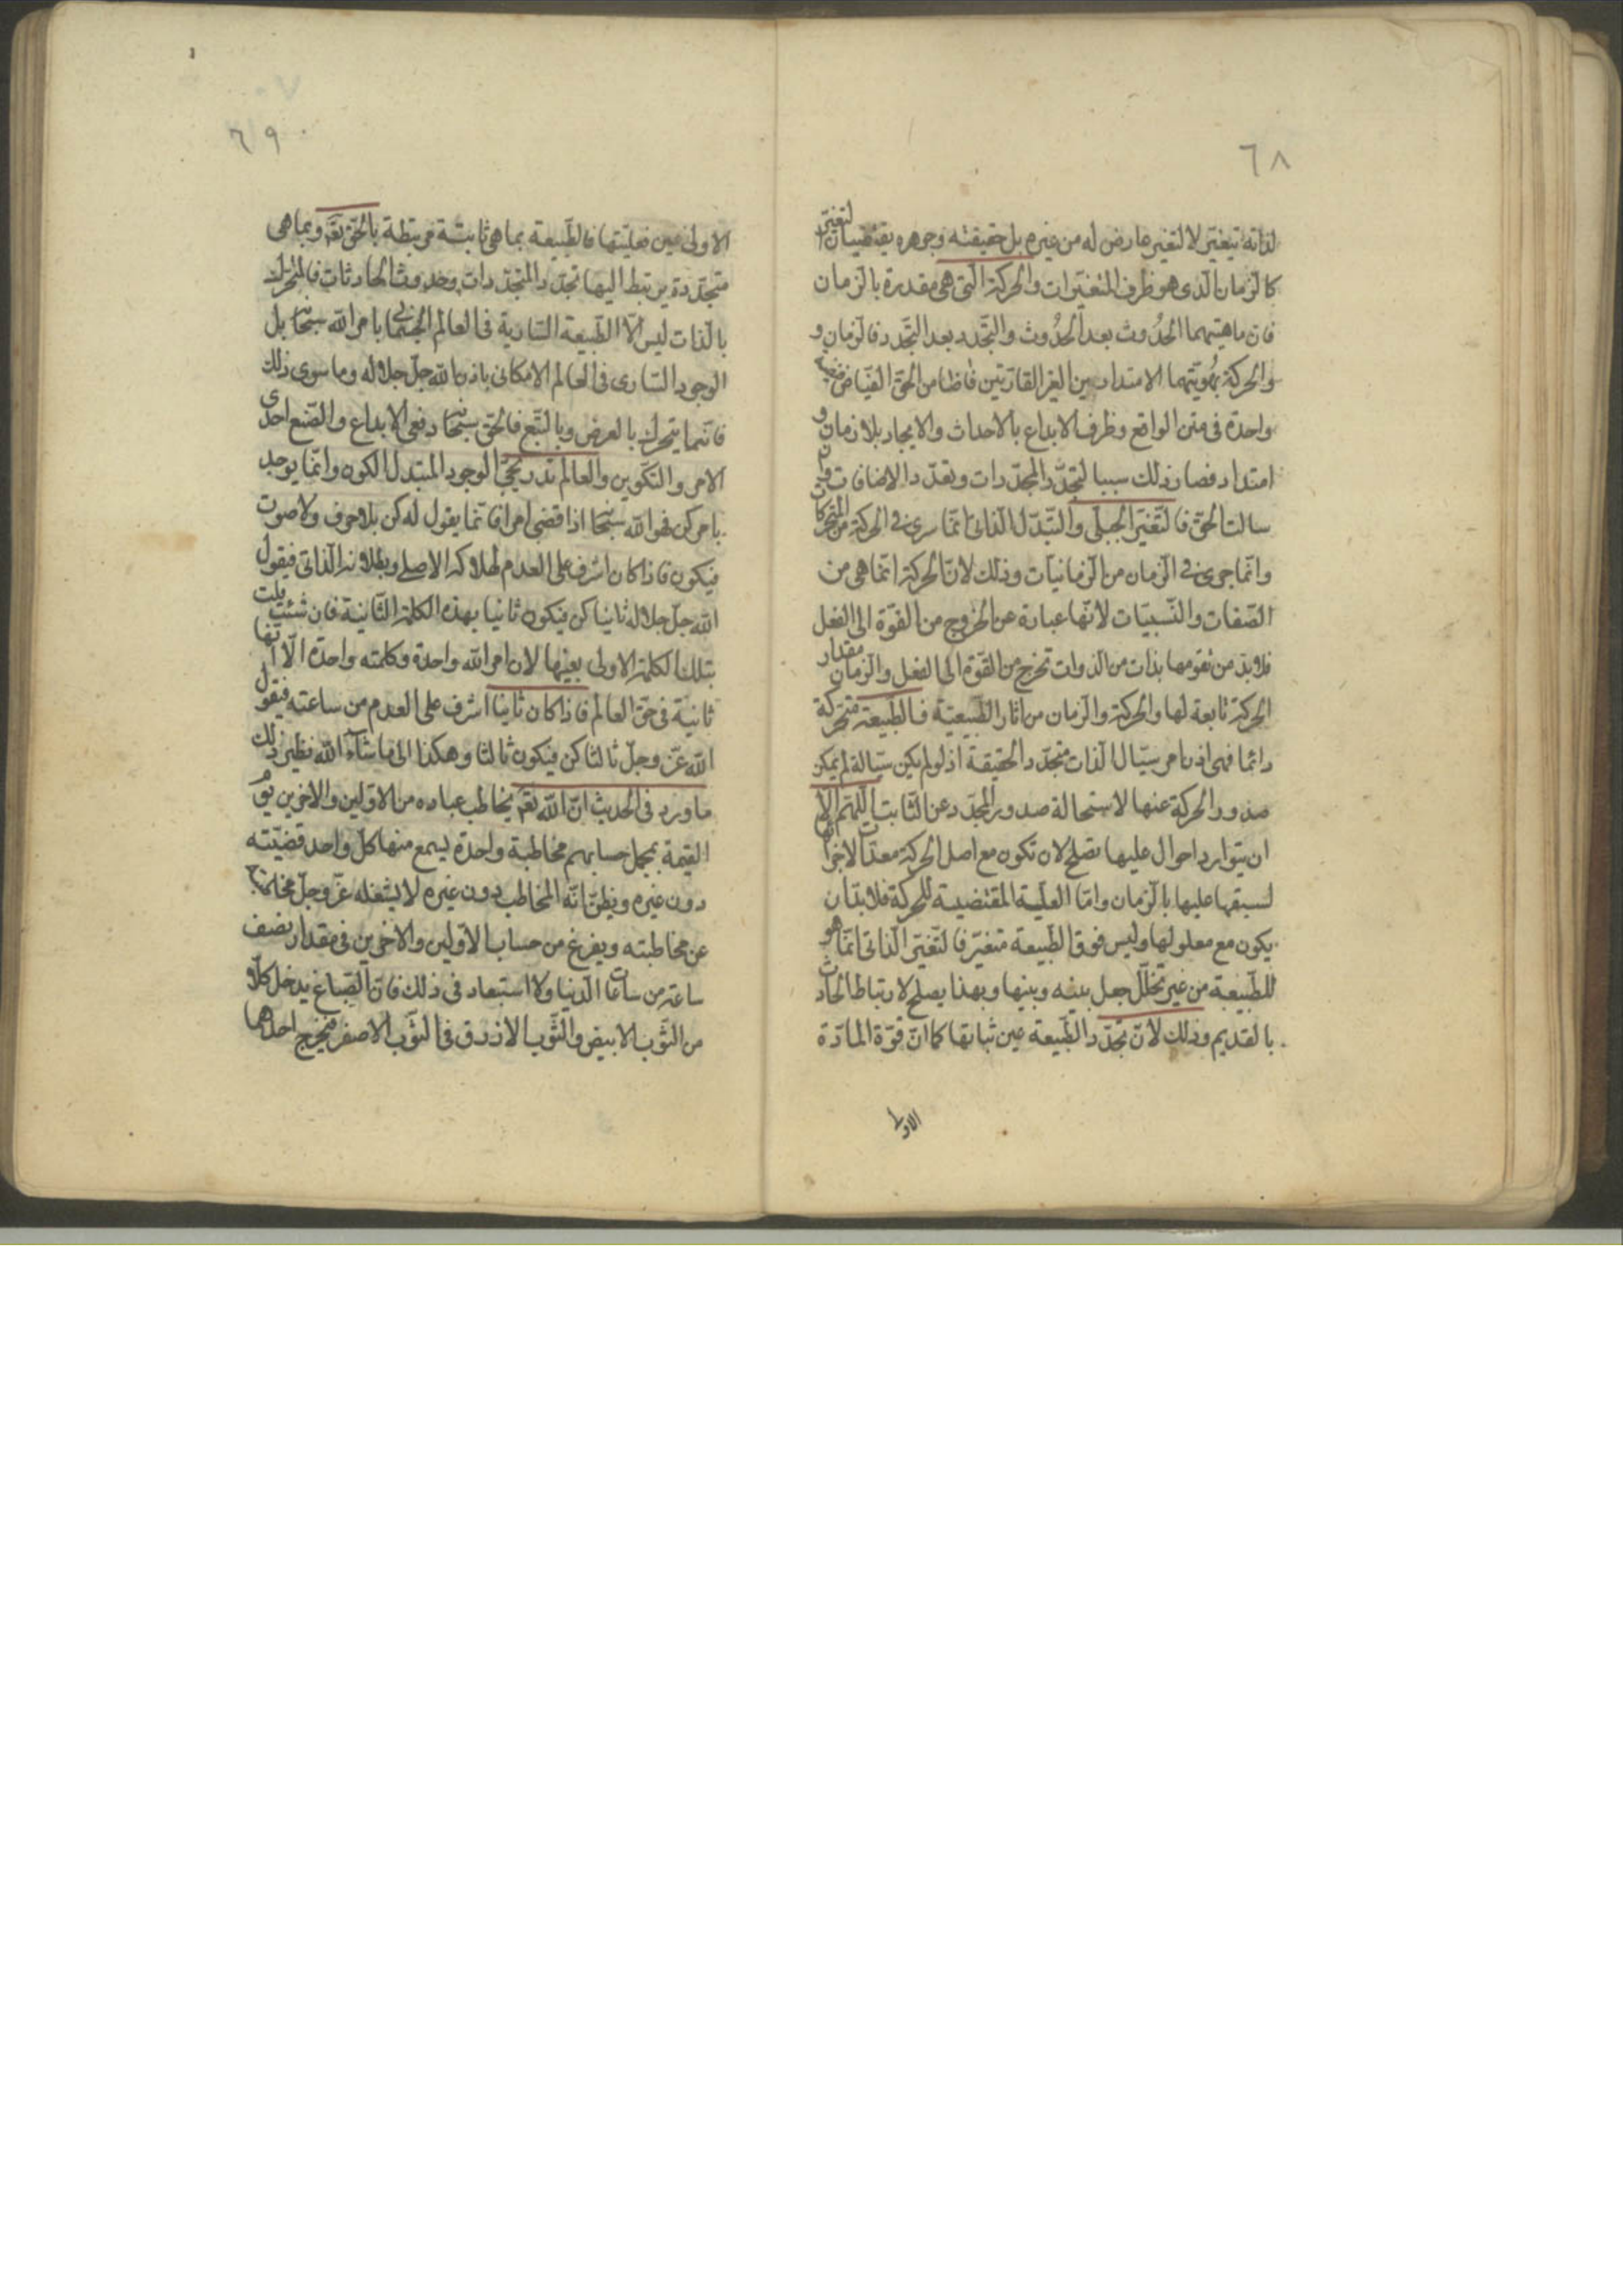 ٦٨
لذاته يتغير لا لتغير عارض له من غيره بل حقيقته وجوهره يقتضيان التغير
كالزمان الذى هو ظرف المتغيرات والحركة التى هى مقدرة بالزمان
فان ماهيتهما الحُدوث بعد الحُدوث والتجدد بعد التجدد فالزمان و
والحركة بهُويّتهما الامتداديين الغير القارّتين فاضا من الحقّ الفيّاض
واحدة فى متن الواقع وظرف الابداع بالاحداث والايجاد بلا زمان و
امتداد فصار ذلك سببا لتجدّد المجدّدات وتعدّد الاضافات وان
سالت الحقّ فالتّغيّر الجبلّى والتّبدّل الذاتى انّما سرى فى الحركة من المتحركات
وانّما جرى فى الزمان من الزمانيّات وذلك لانّ الحركة انّما هى من
الصّفات والنّسبيّات لانّها عبارة عن الخروج من القوّة الى الفعل
فلابدّ من تقومها بذات من الذوات تخرج من القوّة الى الفعل والزمان مقدار
الحركة تابعة لها والحركة والزمان من اثار الطّبيعيّة فالطّبيعة متحركة
دائما فهى اذن امر سيّال الذات متجدّد الحقيقة اذ لو لم يكن سيّالة لم يمكن
صدور الحركة عنها لاستحالة صدور المجدّد عن الثابت اللّهمّ الّا
ان يتوارد احوال عليها تصلح لان تكون مع اصل الحركة معدّات لاجزائها
لسبقها عليها بالزمان وامّا العلّية المقتضية للحركة فلابدّ ان
يكون مع معلولها وليس فوق الطّبيعة متغيّر فالتّغيّر الذاتى انّما هو
للطّبيعة من غير تخلّل جعل بينه وبينها وبهذا يصلح لارتباط الحادث
بالقديم وذلك لانّ تجدّد الطّبيعة عين ثباتها كما انّ قوّة المادّة
الاولى
٦٩
الاولى عين فعليّتها فالطّبيعة بما هى ثابتة مرتبطة بالحقّ تعٰ وبما هى
متجدّدة يرتبط اليها تجدّد المتجدّدات وحدوث الحادثات فالمتحرك
بالذات ليس الّا الطّبيعة السّارية فى العالم الجسمانى بامر الله سبحانه بل
الوجود السّارى فى العالم الامكانى باذن الله جلّ جلاله وما سوى ذلك
فانّما يتحرك بالعرض وبالتّبع فالحقّ سبحانه دفعى الابداع والصّنع احدى
الامر والتكوين والعالم تدريجىّ الوجود المتبدل الكون وانّما يوجد
بامر كن فهو الله سبحانه اذا قضى امرا فانّما يقول له كن بلا حرف ولا صوت
فيكون فاذا كان اشرف على العدم لهلاكه الاصلى وبطلانه الذاتى فيقول
الله جلّ جلاله ثانيا كن فيكون ثانيا بهذه الكلمة الثّانية فان شئت قلت
بتلك الكلمة الاولى بعينها لان امر الله واحدة وكلمته واحدة الّا انّها
ثانية فى حقّ العالم فاذا كان ثانيا اشرف على العدم من ساعته فيقول
الله عزّ وجلّ ثالثا كن فيكون ثالثا وهكذا الى ما شآء الله نظير ذلك
ما ورد فى الحديث انّ الله تعٰ يخاطب عباده من الاوّلين والاخرين يوم
القيمة بمجمل حسابهم مخاطبة واحدة يسمع منها كلّ واحد قضيّته
دون غيره ويظنّ انّه المخاطب دون غيره لا يشغله عزّ وجلّ مخاطبة
عن مخاطبته ويفرغ من حساب الاوّلين والاخرين فى مقدار نصف
ساعة من ساعات الدّنيا ولا استبعاد فى ذلك فانّ الصّباغ يدخل كلّا
من الثّوب الابيض والثّوب الازرق فى الثوب الاصفر فيخرج احدهما